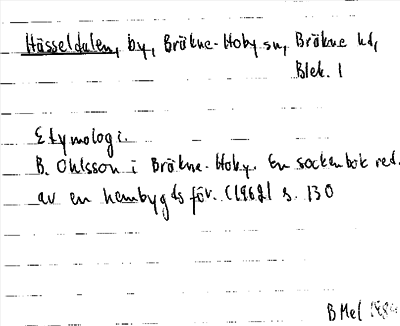 Hässeldalen, by, Bräkne-Hoby sn, Bräkne hd,
Blek. l
Etymologi.
B. Ohlsson i Bräkne-Hoby. En sockenbok red.
av en hembygdsför. (1962) s. 130
B Mel